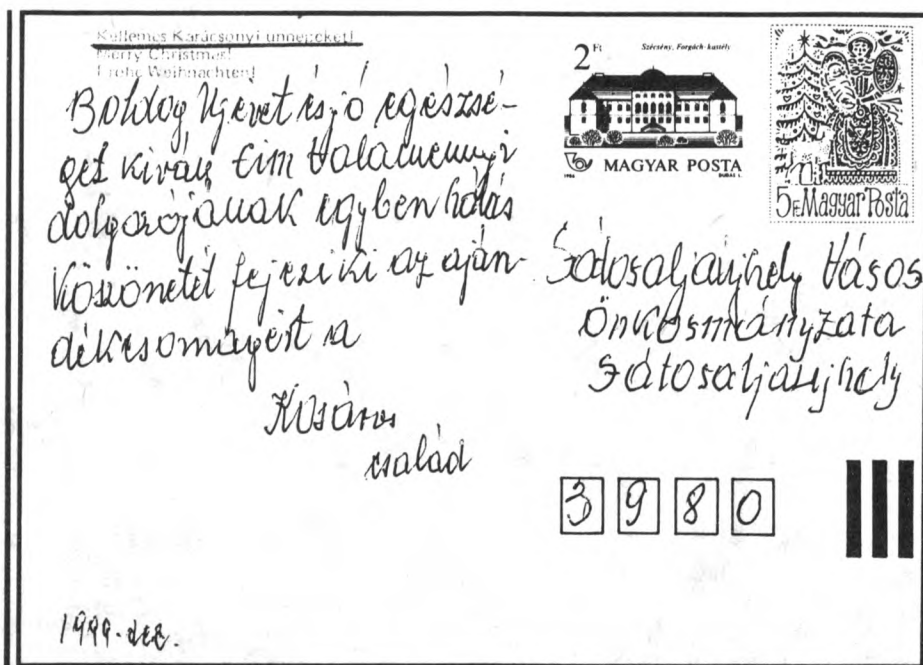 Kellemes Karácsonyi ünnepeket!
Merry Christmas!
Frohe Weihnachten!
Boldog Ujévet és jó egészsé-
get kíván Cim valamennyi
dolgozójának egyben hálás
köszönetét fejezi ki az aján-
dékcsomagért a
Kosáros
család
1999. dec.
2 Ft
Szécsény, Forgách-kastély
MAGYAR POSTA
1986
DUDÁS L.
5 Ft Magyar Posta
Sátoraljaújhely Város
Önkormányzata
Sátoraljaújhely
3980